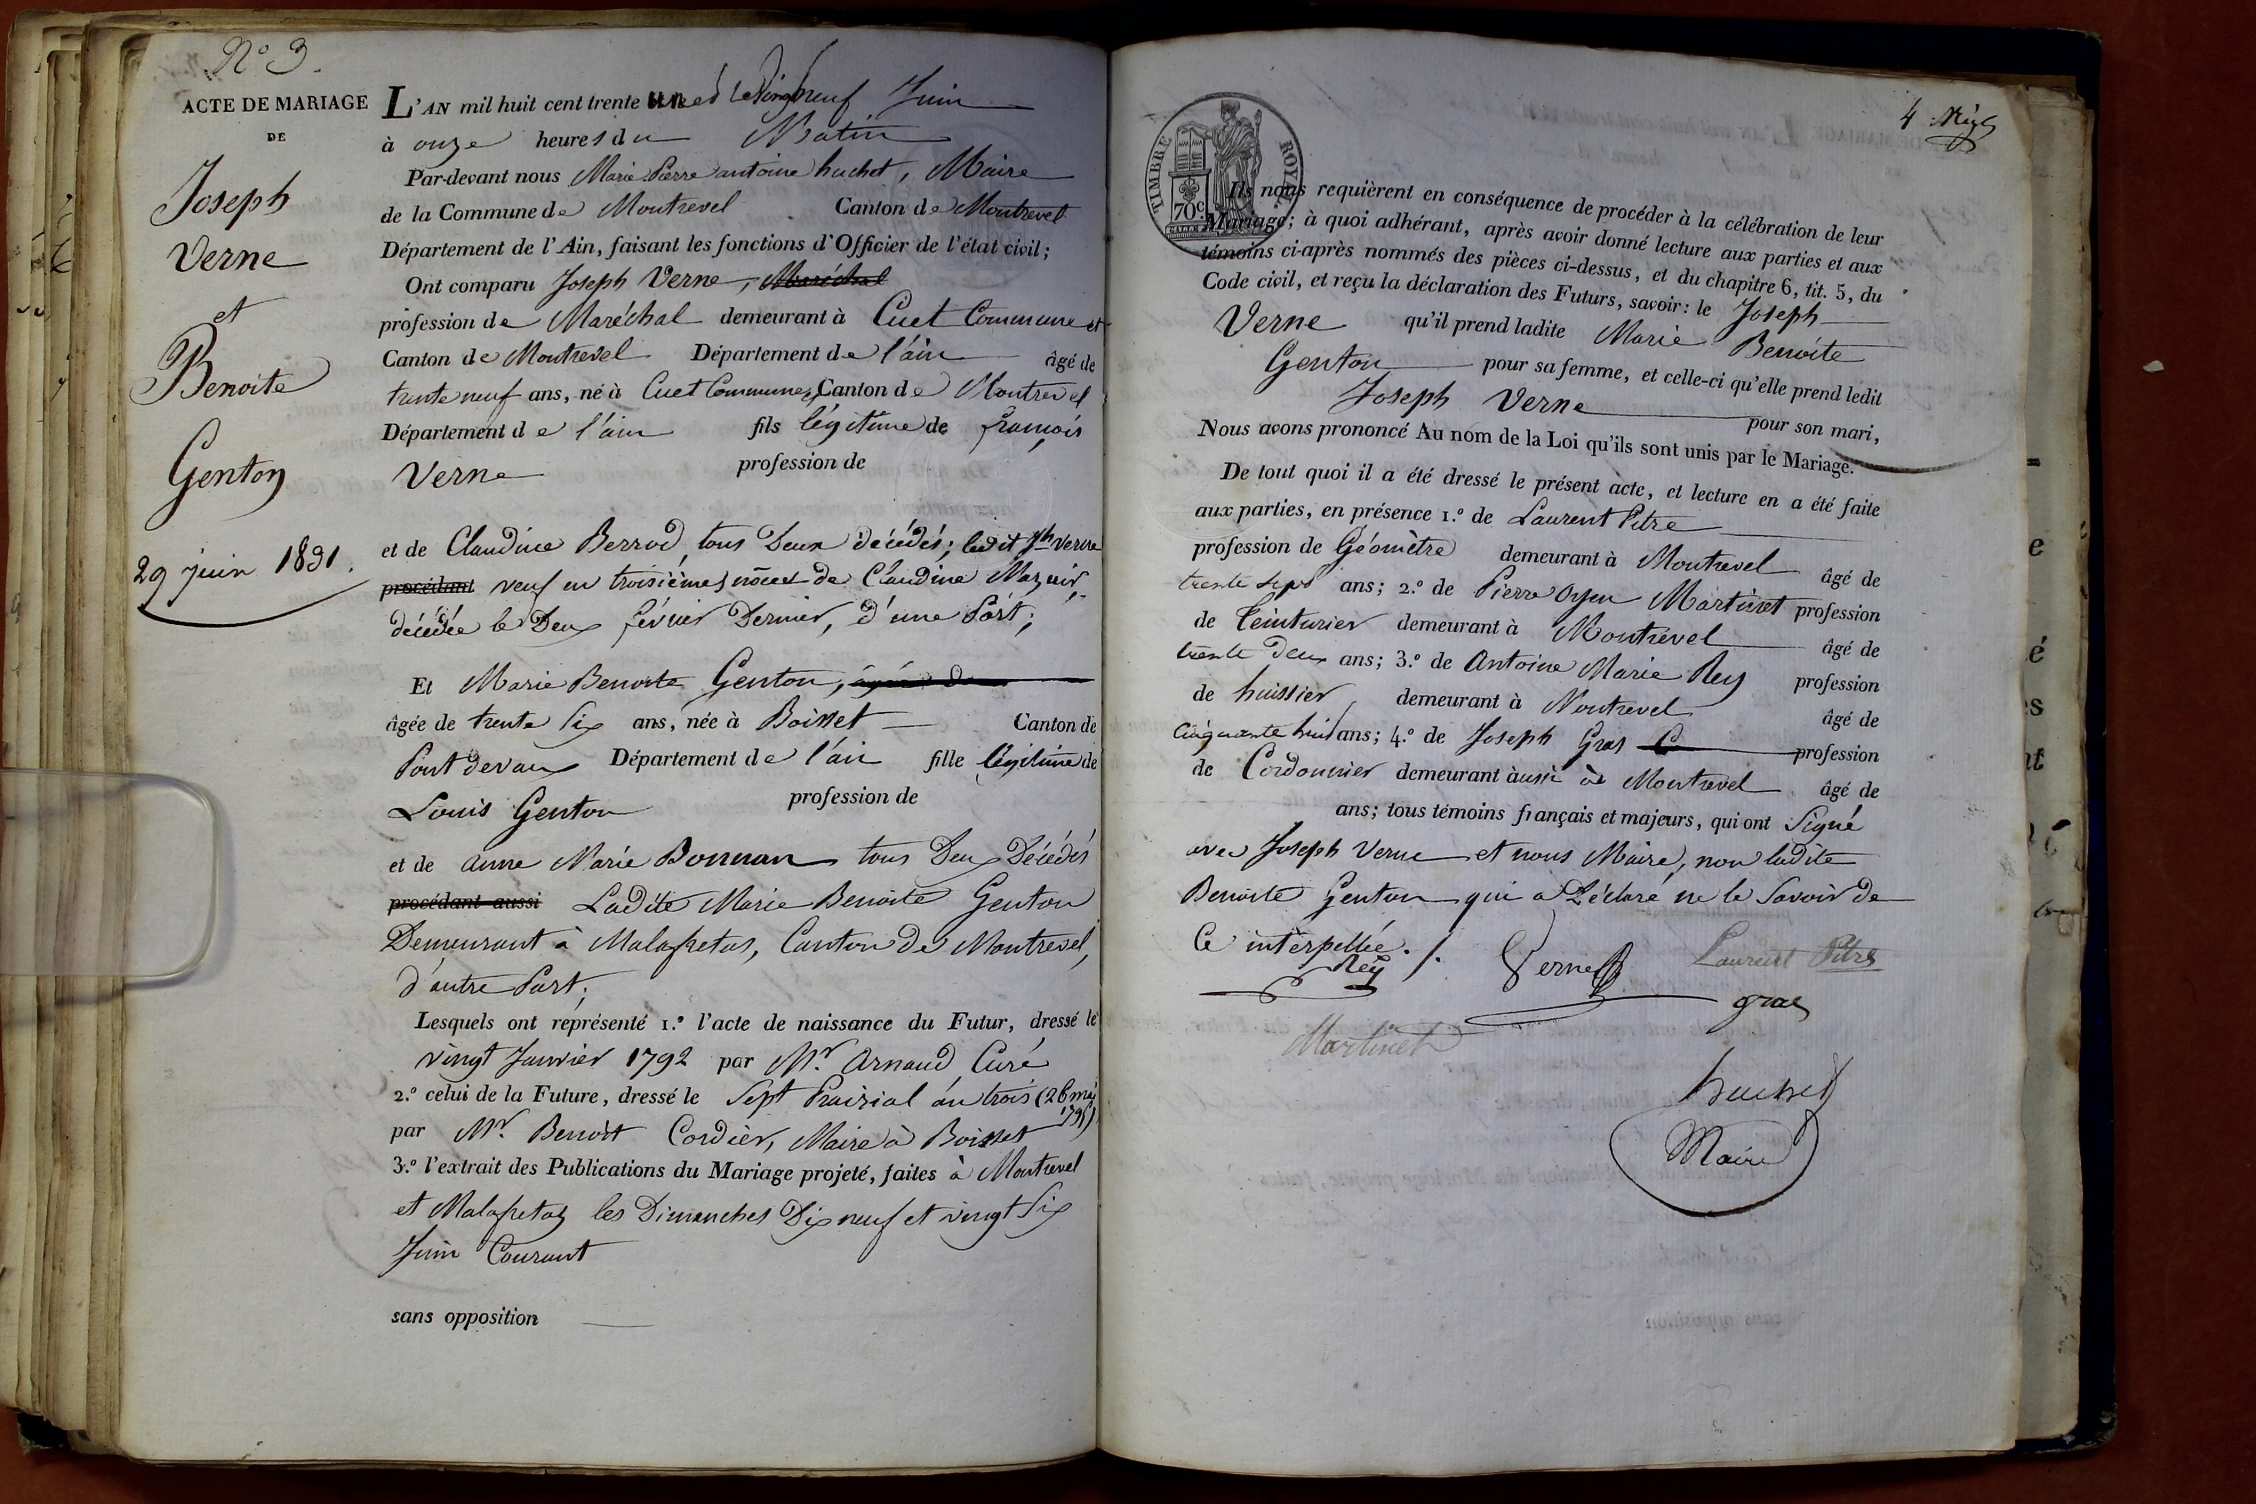 N° 3.
ACTE DE MARIAGE
DE
Joseph
Verne
et
Benoite
Genton
29 juin 1831.
L'AN mil huit cent trente un et le vingt neuf Juin
à onze heures du Matin
Par-devant nous Marie Pierre antoine huchet, Maire
de la Commune de Montrevel Canton de Montrevel
Département de l'Ain, faisant les fonctions d'Officier de l'état civil;
Ont comparu Joseph Verne, Maréchal
profession de Maréchal demeurant à Cuet Commune et
Canton de Montrevel Département de l'ain âgé de
trente neuf ans, né à Cuet Commune, Canton de Montrevel
Département de l'ain fils légitime de françois
Verne profession de
et de Claudine Berrod, tous Deux décédés; ledit Jh verne
procédant veuf en troisièmes nôces de Claudine Mazuir,
décédée le Deux février Dernier, d'une Part;
Et Marie Benoite Genton, âgée de
âgée de trente Six ans, née à Boisset Canton de
Pont devaux Département de l'ain fille légitime de
Louis Genton profession de
et de anne Marie Bonnan tous Deux Décédés
procédant aussi Ladite Marie Benoite Genton
Demeurant à Malafretas, Canton de Montrevel,
d'autre Part;
Lesquels ont représenté 1.° l'acte de naissance du Futur, dressé le
vingt Janvier 1792 par Mr. Arnaud Curé
2.° celui de la Future, dressé le Sept Prairial an trois (26 mai
1795)
par Mr. Benoit Cordier, Maire à Boisset
3.° l'extrait des Publications du Mariage projeté, faites à Montrevel
et Malafretaz les Dimanches Dix neuf et vingt Six
Juin Courant
sans opposition
4
TIMBRE ROYAL
70c.
Ils nous requièrent en conséquence de procéder à la célébration de leur
Mariage; à quoi adhérant, après avoir donné lecture aux parties et aux
témoins ci-après nommés des pièces ci-dessus, et du chapitre 6, tit. 5, du
Code civil, et reçu la déclaration des Futurs, savoir: le Joseph
Verne qu'il prend ladite Marie Benoite
Genton pour sa femme, et celle-ci qu'elle prend ledit
Joseph Verne pour son mari,
Nous avons prononcé Au nom de la Loi qu'ils sont unis par le Mariage.
De tout quoi il a été dressé le présent acte, et lecture en a été faite
aux parties, en présence 1.° de Laurent Pitre
profession de Géomètre demeurant à Montrevel âgé de
trente sept ans; 2.° de Pierre Martinet profession
de Teinturier demeurant à Montrevel âgé de
trente deux ans; 3.° de Antoine Marie Rey profession
de huissier demeurant à Montrevel âgé de
Cinquante huit ans; 4.° de Joseph Gras profession
de Cordonnier demeurant aussi à Montrevel âgé de
ans; tous témoins français et majeurs, qui ont Signé
avec Joseph Verne et nous Maire, non ladite
Benoite Genton qui a Déclaré ne le Savoir de
Ce interpellée ./.
Rey Verne Laurent Pitre
gras
Martinet
huchet
Maire